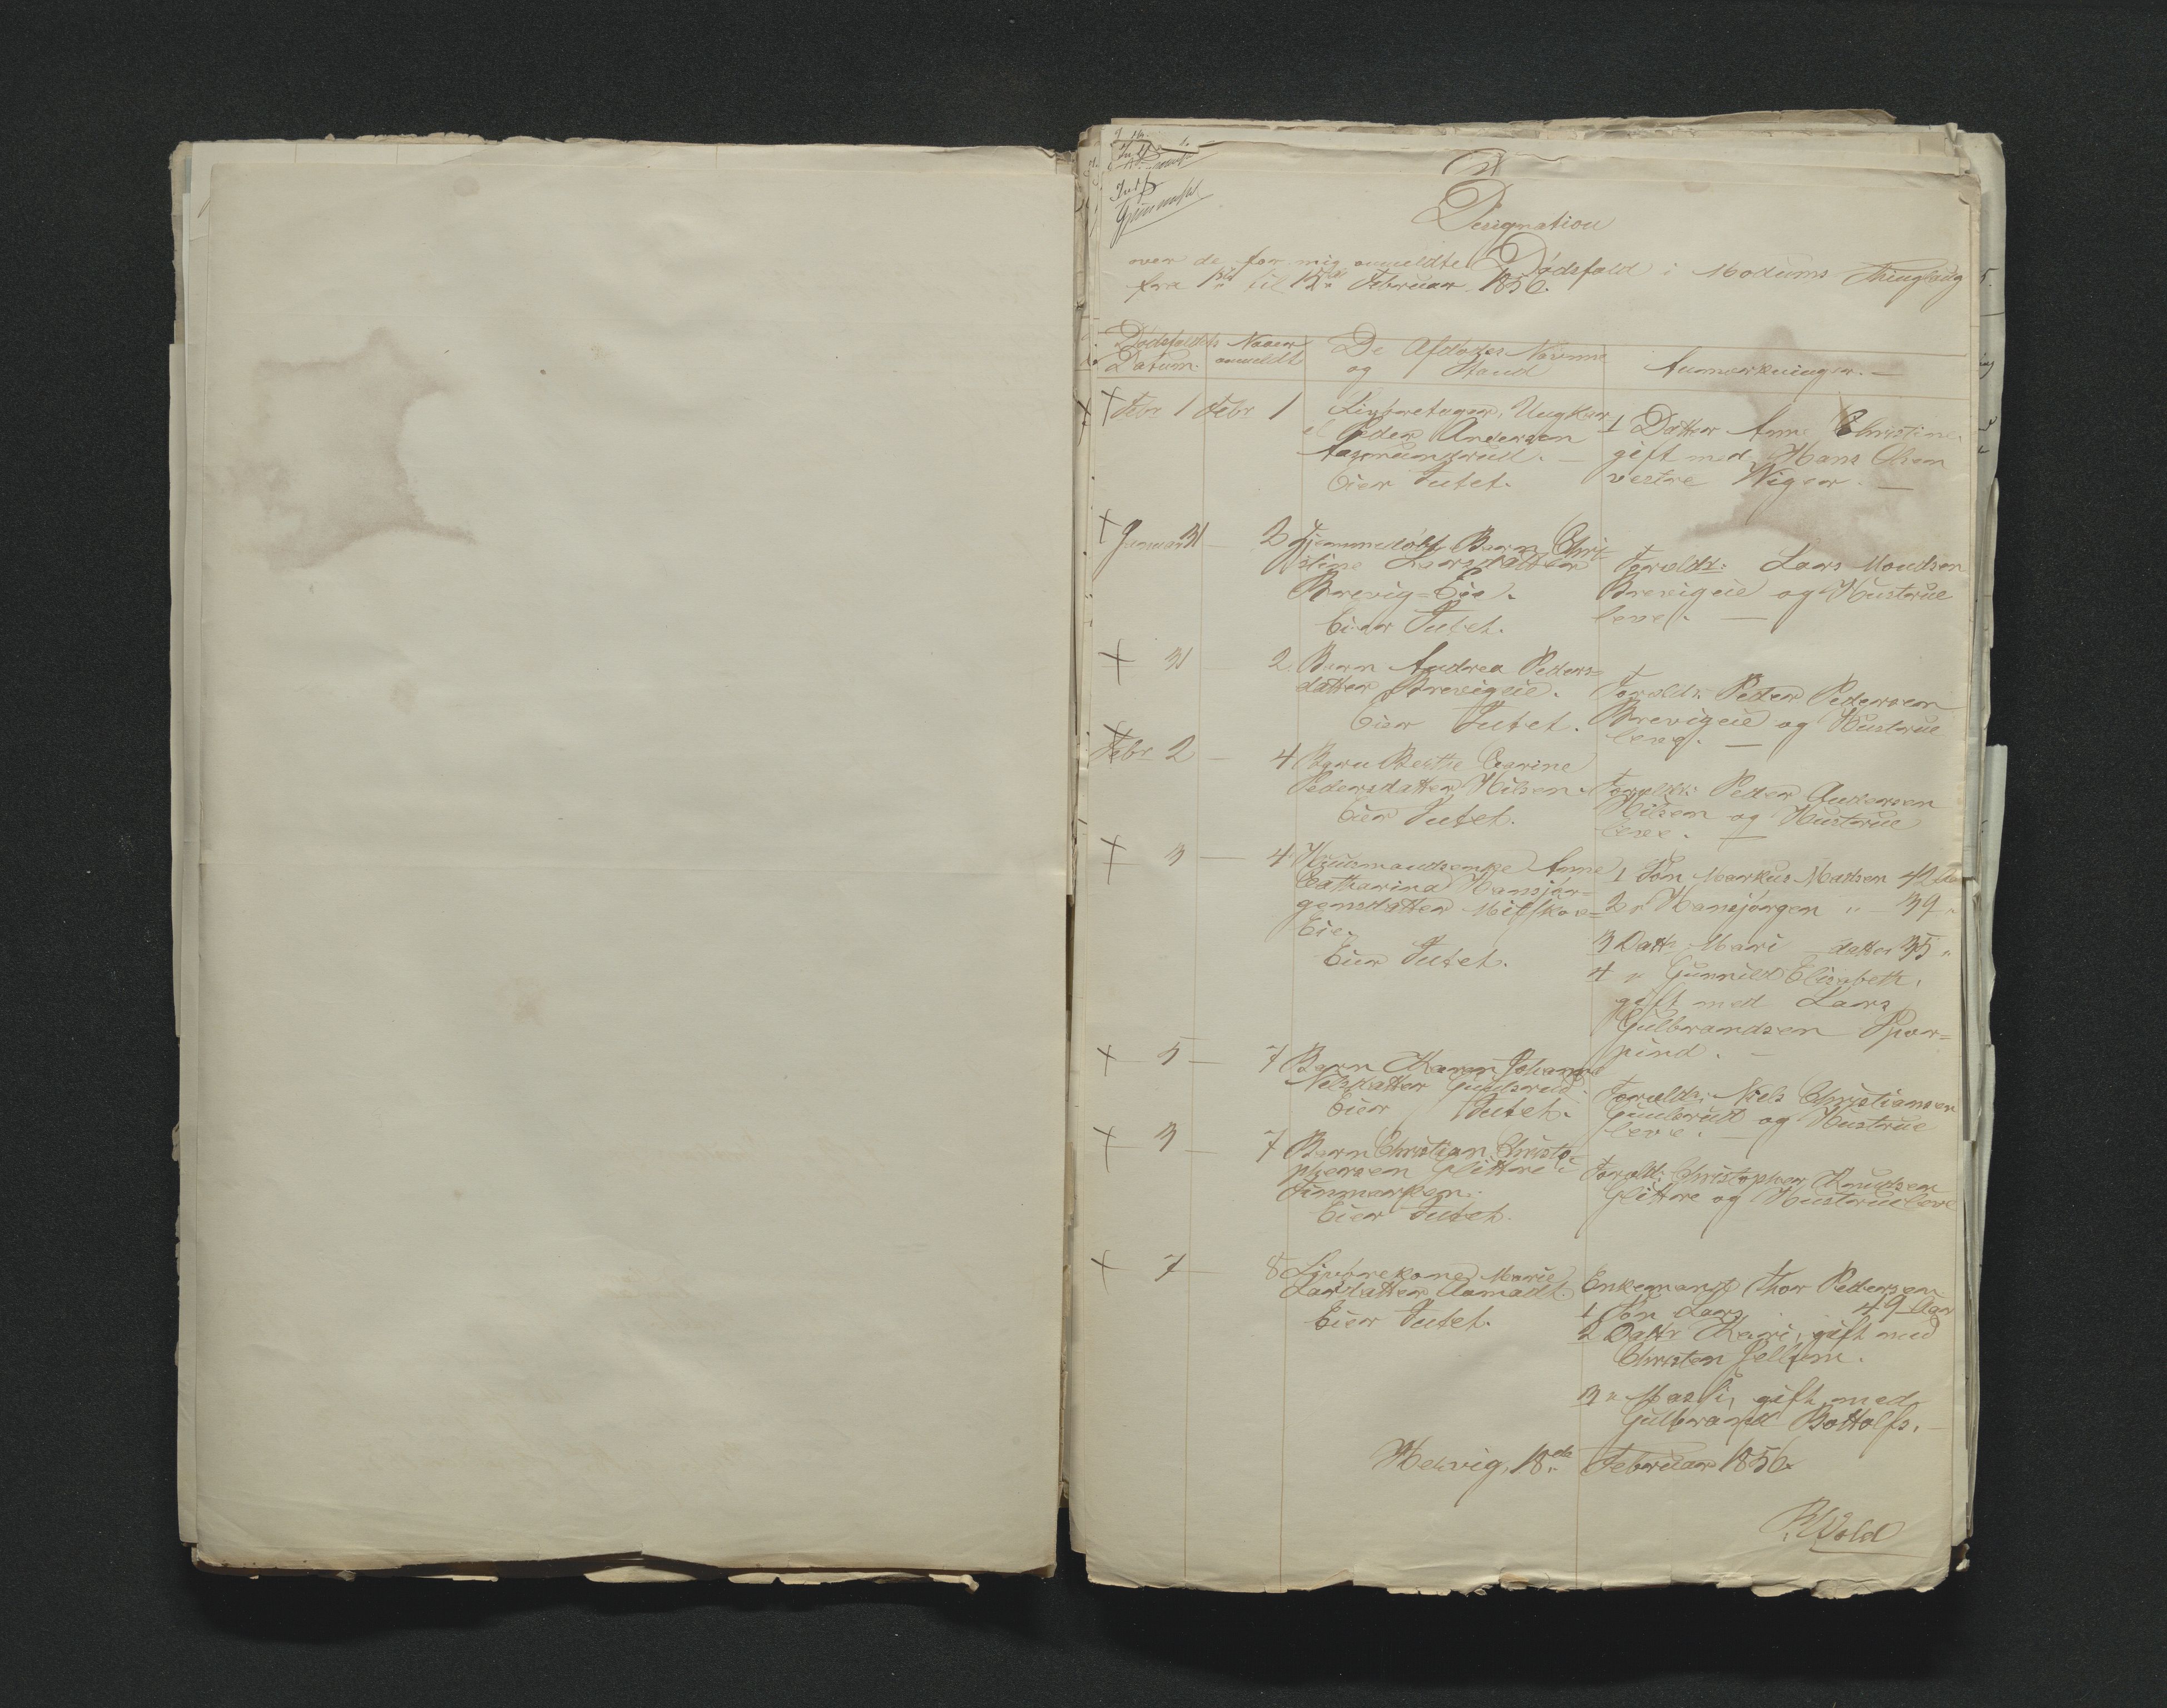 Designation
over de for mig anmeldte Dødsfald i Modums Thinglaug
fra 1ste til 15de Februar 1856.
Dødsfaldets Datum.
Naar anmeldt
De Afdødes Navne og Stand
Anmærkninger. —
† Febr 1 Febr 1
Peder Andersen
Eier Intet.
1 Datter Anne Christine
gift med Hans Olsen
vestre
† Januar 31 — 2
Hjemmedøbt Barn Chri-
stine Larsdatter
Brevig-Eie.
Eier Intet.
Foreldr: Lars
Brevigeie og Hustrue
leve. —
† 31 — 2.
Barn Andrea Peders-
datter Brevigeie.
Eier Intet.
Foreldr: Peder Pedersen
Brevigeie og Hustrue
leve. —
† Febr 2 — 4
Barn Berthe Carine
Pedersdatter Hilsen.
Eier Intet.
Foreldr: Peder Andersen
Hilsen og Hustrue
leve. —
† 3 — 4
Huusmandsenke Anne
Catharina Hansjør-
gensdatter
Eie.
Eier Intet.
1 Søn Markus Madsen 42 Aar
2 " Hansjørgen " — 39 "
3 Datt. Mari — datter 35 "
4 " Gunnild Elisabeth,
gift med Lars
Gulbrandsen Spor-
pind. —
† 5 — 7
Barn Karen Johanne
Nilsdatter
Eier Intet.
Foreldr: Niels Christiansen
og Hustrue
leve. —
† 3 — 7
Barn Christian Christo-
phersen Glittre i
Finmarken.
Eier Intet.
Foreldr: Christopher Knudsen
Glittre og Hustrue leve
† 7 — 8
Marie
Larsdatter Aamodt.
Eier Intet.
Enkemand Thor Pedersen
1 Søn Lars 49 Aar
2 Dattr Kari, gift med
Christen
3 " gift med
Gulbrand Bottolfs. —
Hervig, 18de Februar 1856.
Wold